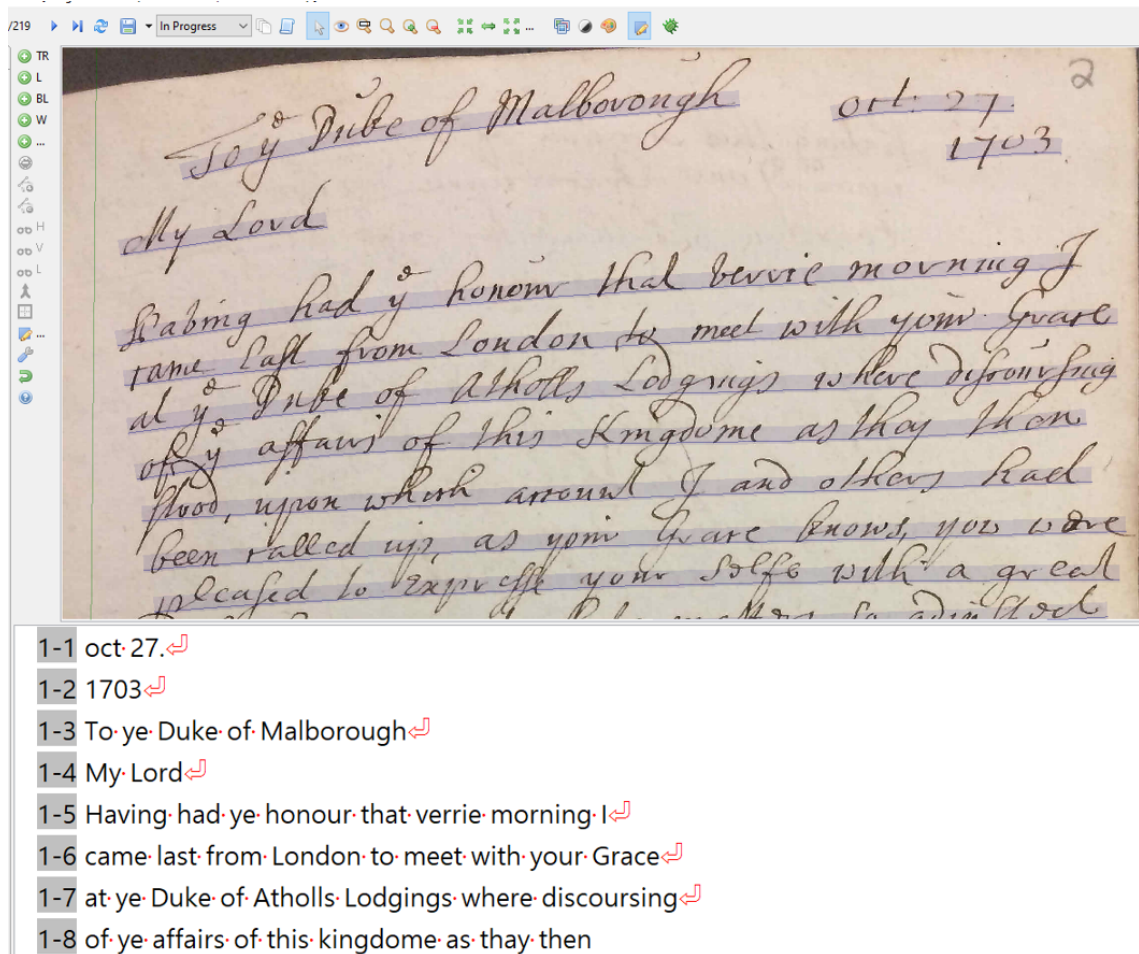 /219 In Progress
TR
L
BL
W
...
H
V
L
...
2
To ye Duke of Malborough oct: 27.
1703
My Lord
Having had ye honour that verrie morning I
came last from London to meet with your Grace
at ye Duke of Atholls Lodgings where discoursing
of ye affairs of this Kingdome as thay then
stood, upon which account I and others had
been called up, as your Grace knows, you were
pleased to expresse your selfe with a great
1-1 oct 27.
1-2 1703
1-3 To ye Duke of Malborough
1-4 My Lord
1-5 Having had ye honour that verrie morning I
1-6 came last from London to meet with your Grace
1-7 at ye Duke of Atholls Lodgings where discoursing
1-8 of ye affairs of this kingdome as thay then